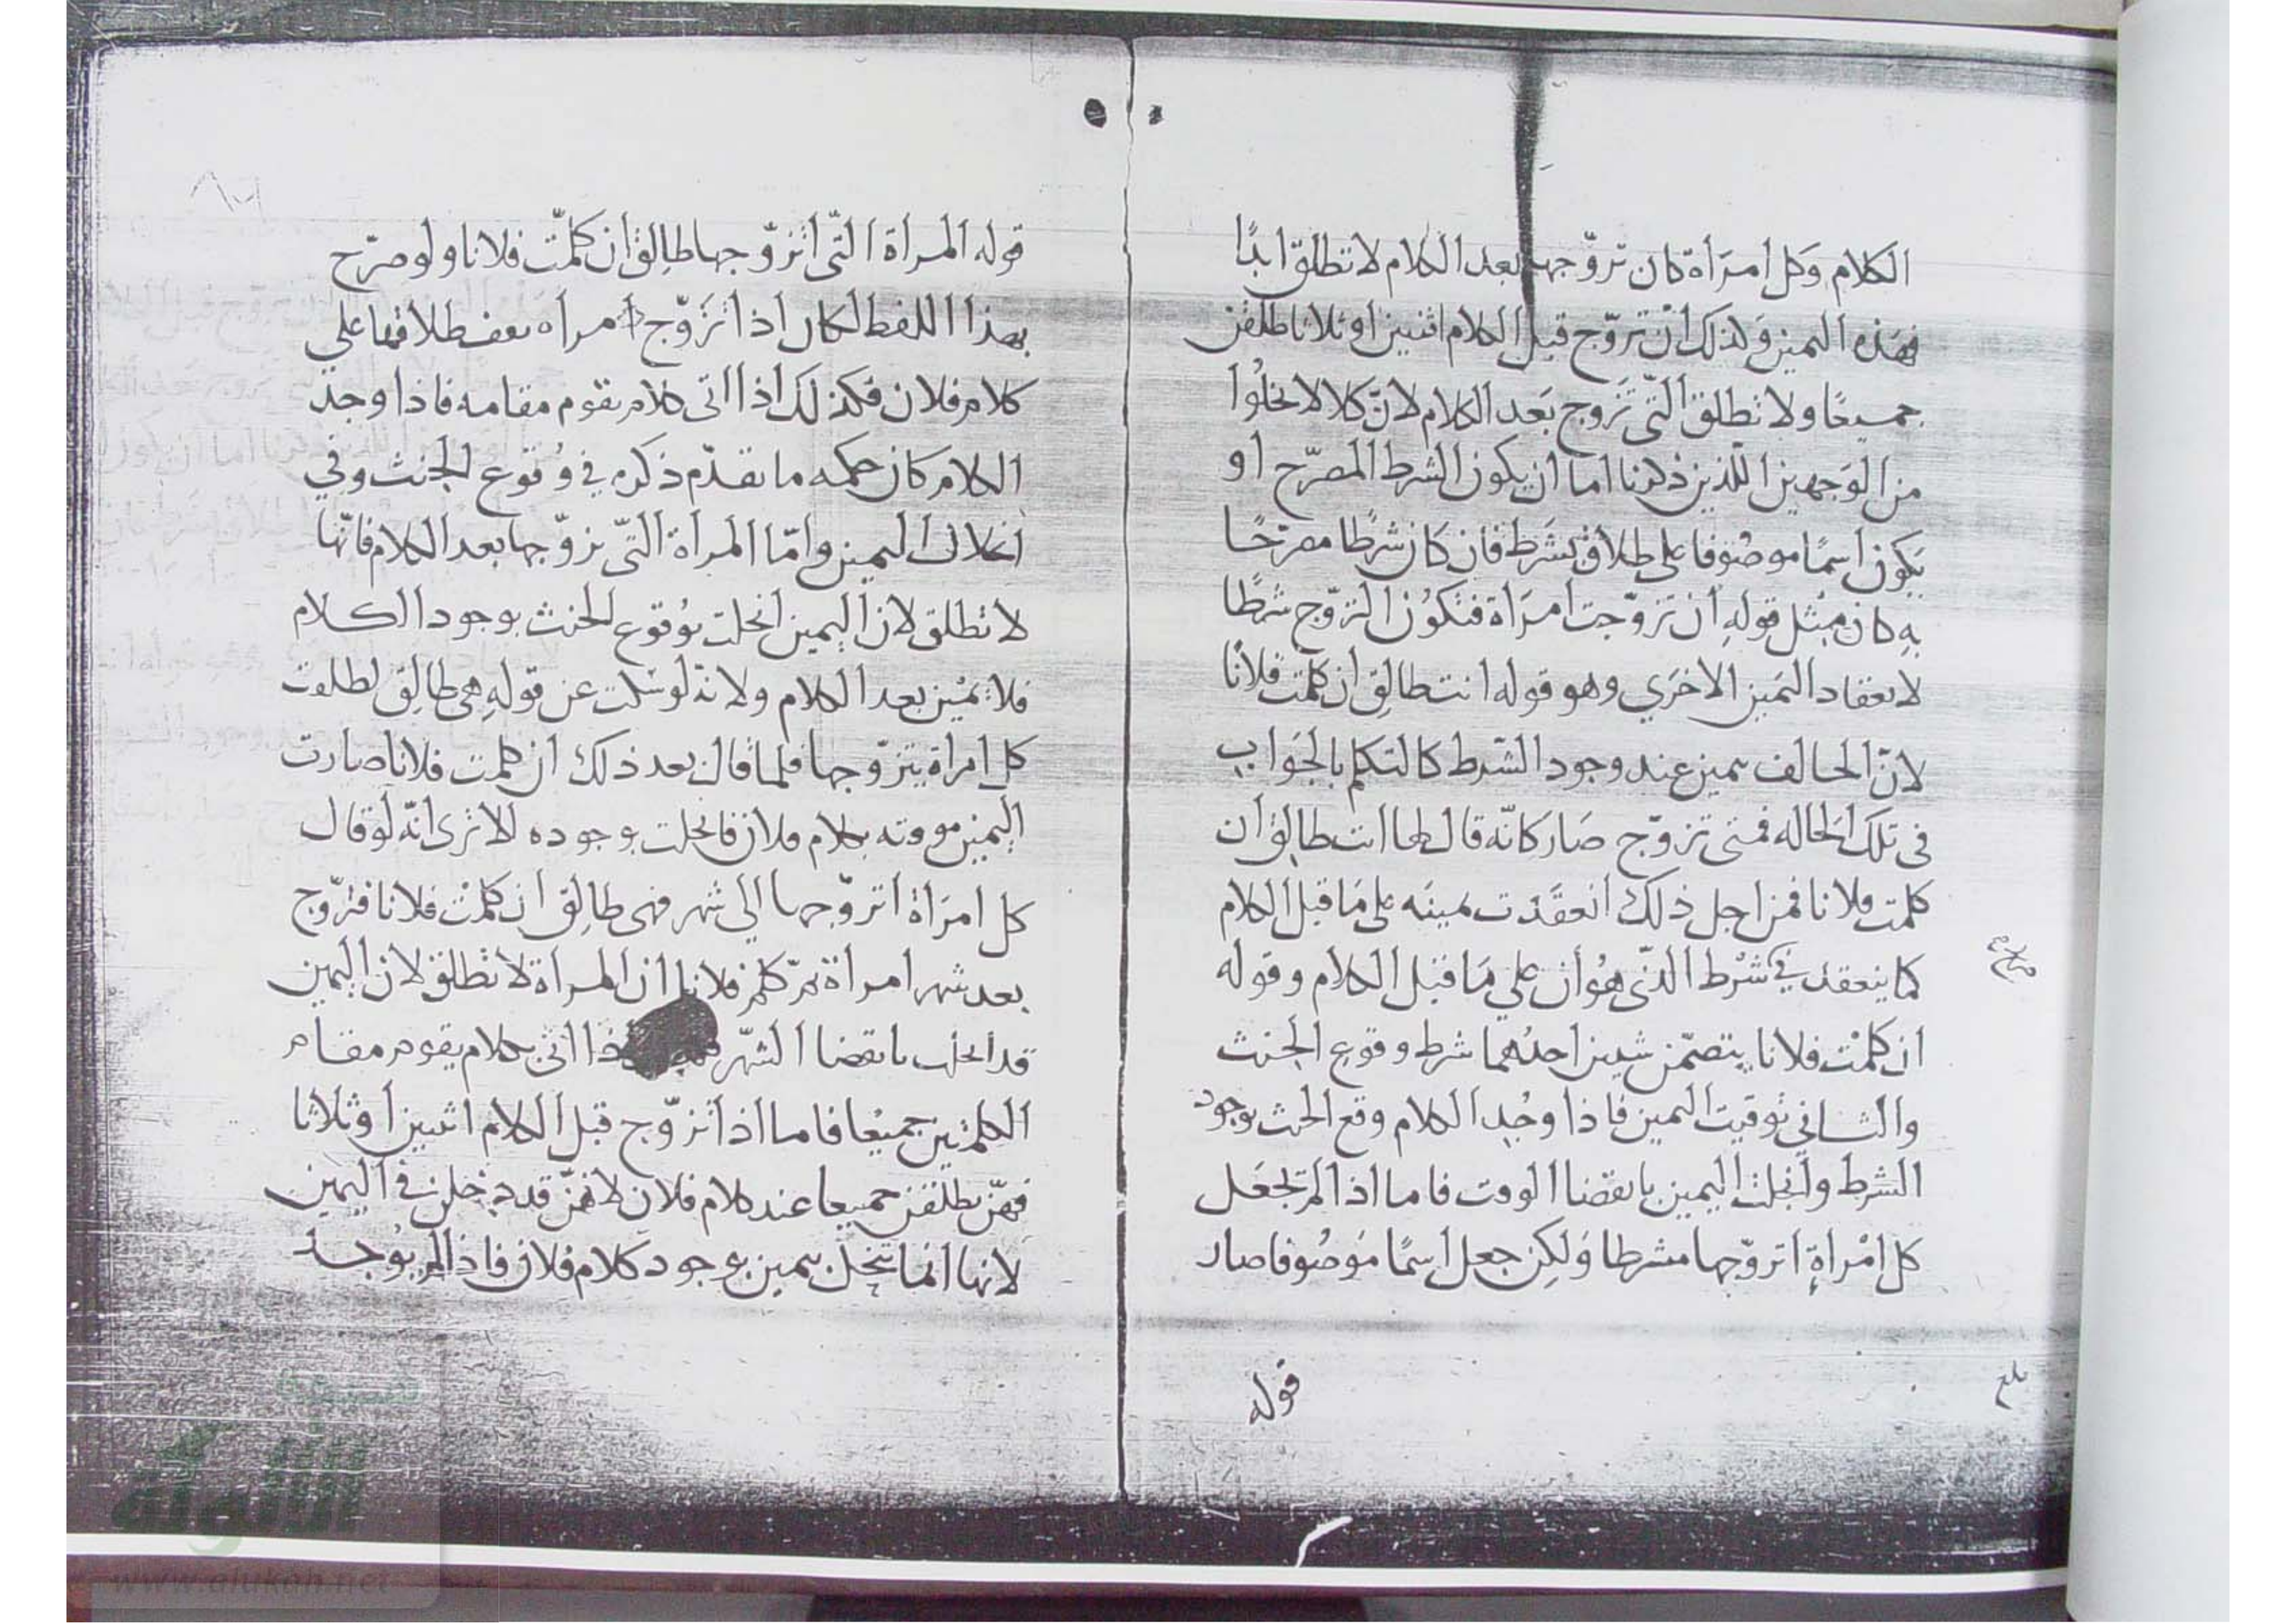 الكلام وكل امرأة كان تزوّجها بعد الكلام لا تطلق ابدًا
فهذه اليمين وكذلك ان تزوّج قبل الكلام اثنين او ثلاثا طلقن
جميعًا ولا تطلق التّي تزوج بعد الكلام لانّ كلا لا يخلوا
من الوجهين اللّذين ذكرنا اما ان يكون الشرط المصرّح او
يكون اسمًا موصُوفا على طلاق بشرط فان كان شرطًا مصرّحًا
به كان مثل قوله ان تزوّجت امرأة فتكون التزوّج شرطًا
لانعقاد اليمين الاخرى وهو قوله انت طالق ان كلّمت فلانًا
لانّ الحالف بيمين عند وجود الشّرط كالمتكلم بالجواب
في تلك الحاله فمتى تزوّج صار كانّه قال لها انت طالق ان
كلمت فلانا فمن اجل ذلك انعقدت يمينه على ما قبل الكلام
كما ينعقد في شرط الذّي هو ان على ما قبل الكلام وقوله
ان كلمت فلانا يتضمّن شيين احدهما شرط وقوع الحنث
والثاني توقيت اليمين فاذا وجد الكلام وقع الحنث بوجود
الشرط وانحلت اليمين بانقضا الوقت فاما اذا لم يجعل
كل امرأةٍ اتزوّجها مشرطا ولكن جعل اسمًا موصُوفا صار
قوله
بلغ
قوله المرأة التّي اتزوّجها طالق ان كلّمت فلانا ولو صرّح
بهذا اللفظ لكان اذا تزوّج امرأه يقف طلاقها على
كلام فلان فكذلك اذا اتى كلام يقوم مقامه فاذا وجد
الكلام كان حكمه ما تقدّم ذكره في وُقوع الحنث وفي
انحلال اليمين وامّا المرأة التّي تزوّجها بعد الكلام فانّها
لا تطلق لان اليمين انحلت بوُقوع الحنث بوجود الكلام
فلا يمين بعد الكلام ولانه لو سكت عن قوله هي طالق لطلقت
كل امرأة يتزوّجها فلما قال بعد ذلك ان كلمت فلانا صارت
اليمين موقته بكلام فلان فانحلت بوجوده الا ترى انّه لو قال
كل امرأة اتزوّجها الى شهر فهي طالق ان كلمت فلانا فتزوّج
بعد شهر امرأة ثم كلم فلانا ان المرأة لا تطلق لان اليمين
قد انحلت بانقضا الشّهر اذا اتى بكلام يقوم مقام
الكلمتين جميعا فاما اذا تزوّج قبل الكلام اثنين او ثلاثا
فهنّ يطلقن جميعا عند كلام فلان لانهنّ قد دخلن في اليمين
لانها انما تنحل بيمين بوجود كلام فلان فاذا لم يوجد
الألوكة
www.alukah.net